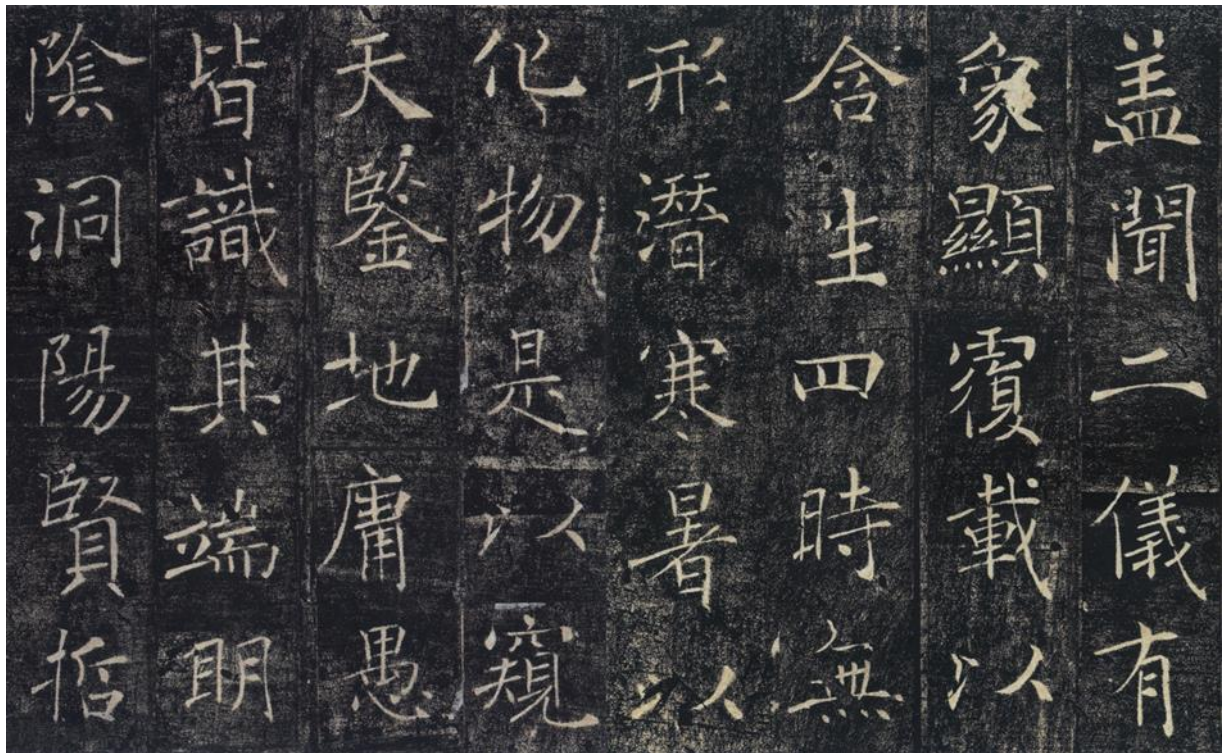 盖聞二儀有
象顯覆載以
含生四時無
形潛寒暑以
化物是以窺
天鑒地庸愚
皆識其端明
陰洞陽賢哲